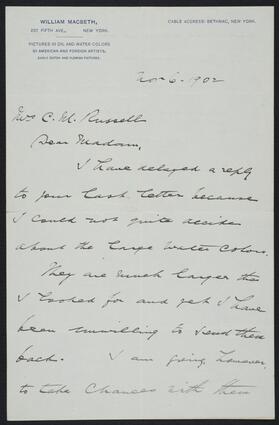 WILLIAM MACBETH,
237 FIFTH AVE., NEW YORK.
PICTURES IN OIL AND WATER COLORS
BY AMERICAN AND FOREIGN ARTISTS,
EARLY DUTCH AND FLEMISH PICTURES.
CABLE ADDRESS: BETHMAC, NEW YORK.
Nov 6. 1902
Mrs C. M. Russell
Dear Madam,
I have delayed a reply
to your last letter because
I could not quite decide
about the large water colors.
They are much larger than
I looked for and yet I have
been unwilling to send them
back. I am going, however,
to take chances with them